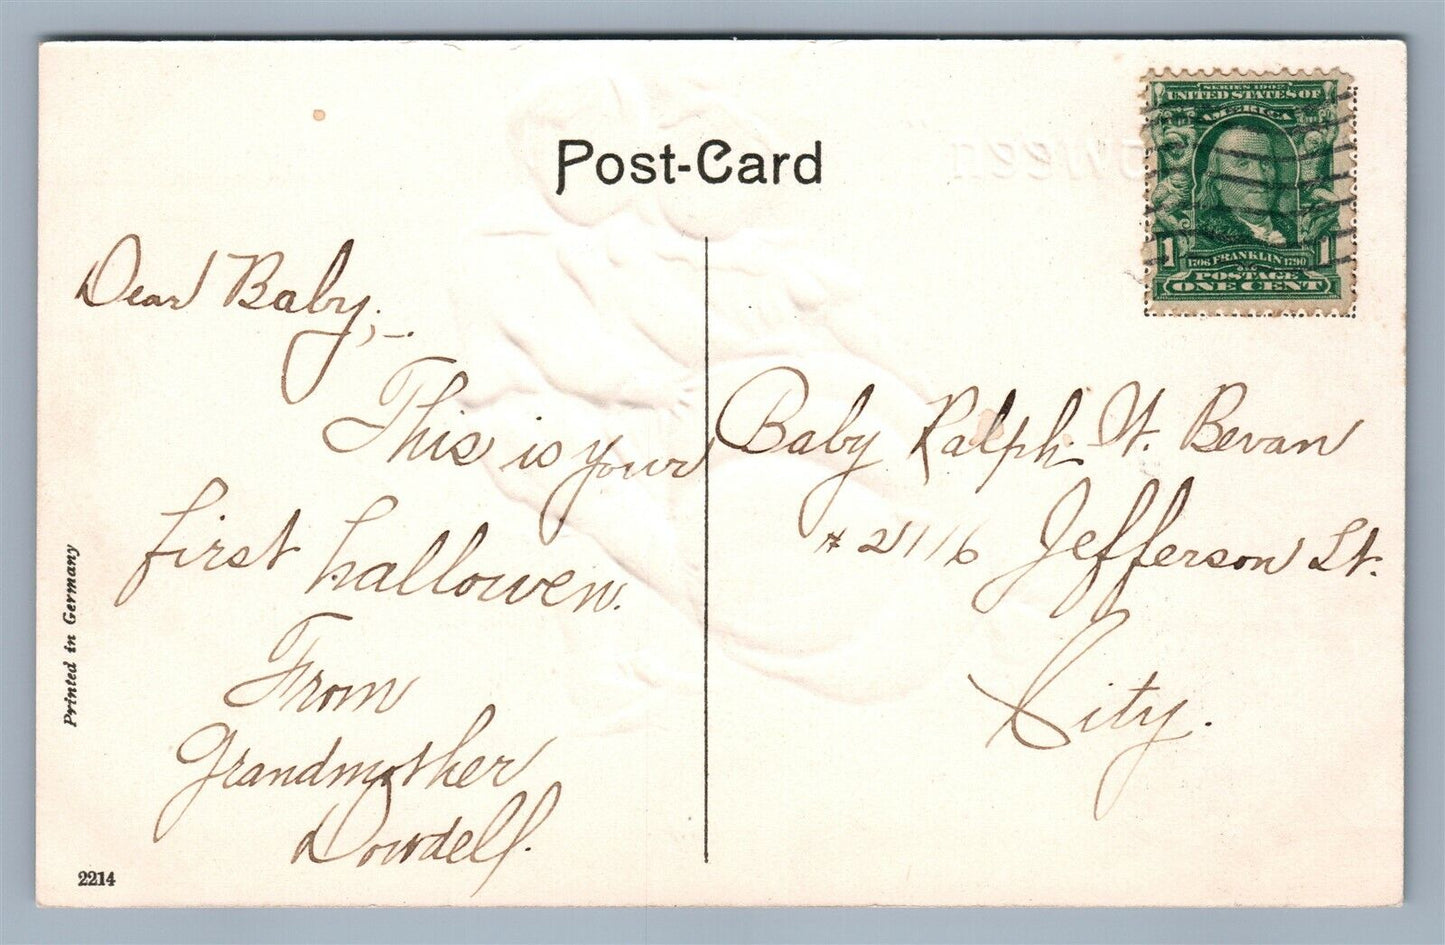 Post-Card
SERIES 1902
UNITED STATES OF
AMERICA
1 1
1706 FRANKLIN 1790
POSTAGE
ONE CENT
Dear Baby,-.
This is your
first hallowen.
From
Grandmother
Dowdell.
Baby Ralph W. Bevan
# 2116 Jefferson St.
City.
Printed in Germany
2214